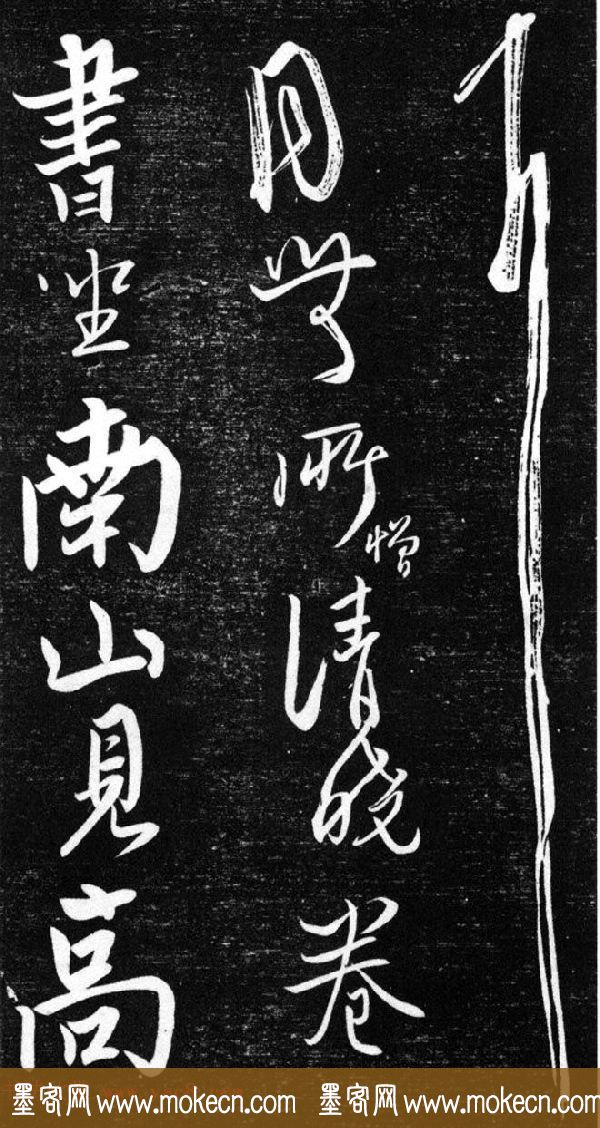 耳
目所憎清曉卷
書坐南山見高
墨客网 www.mokecn.com 墨客网 www.mokecn.com